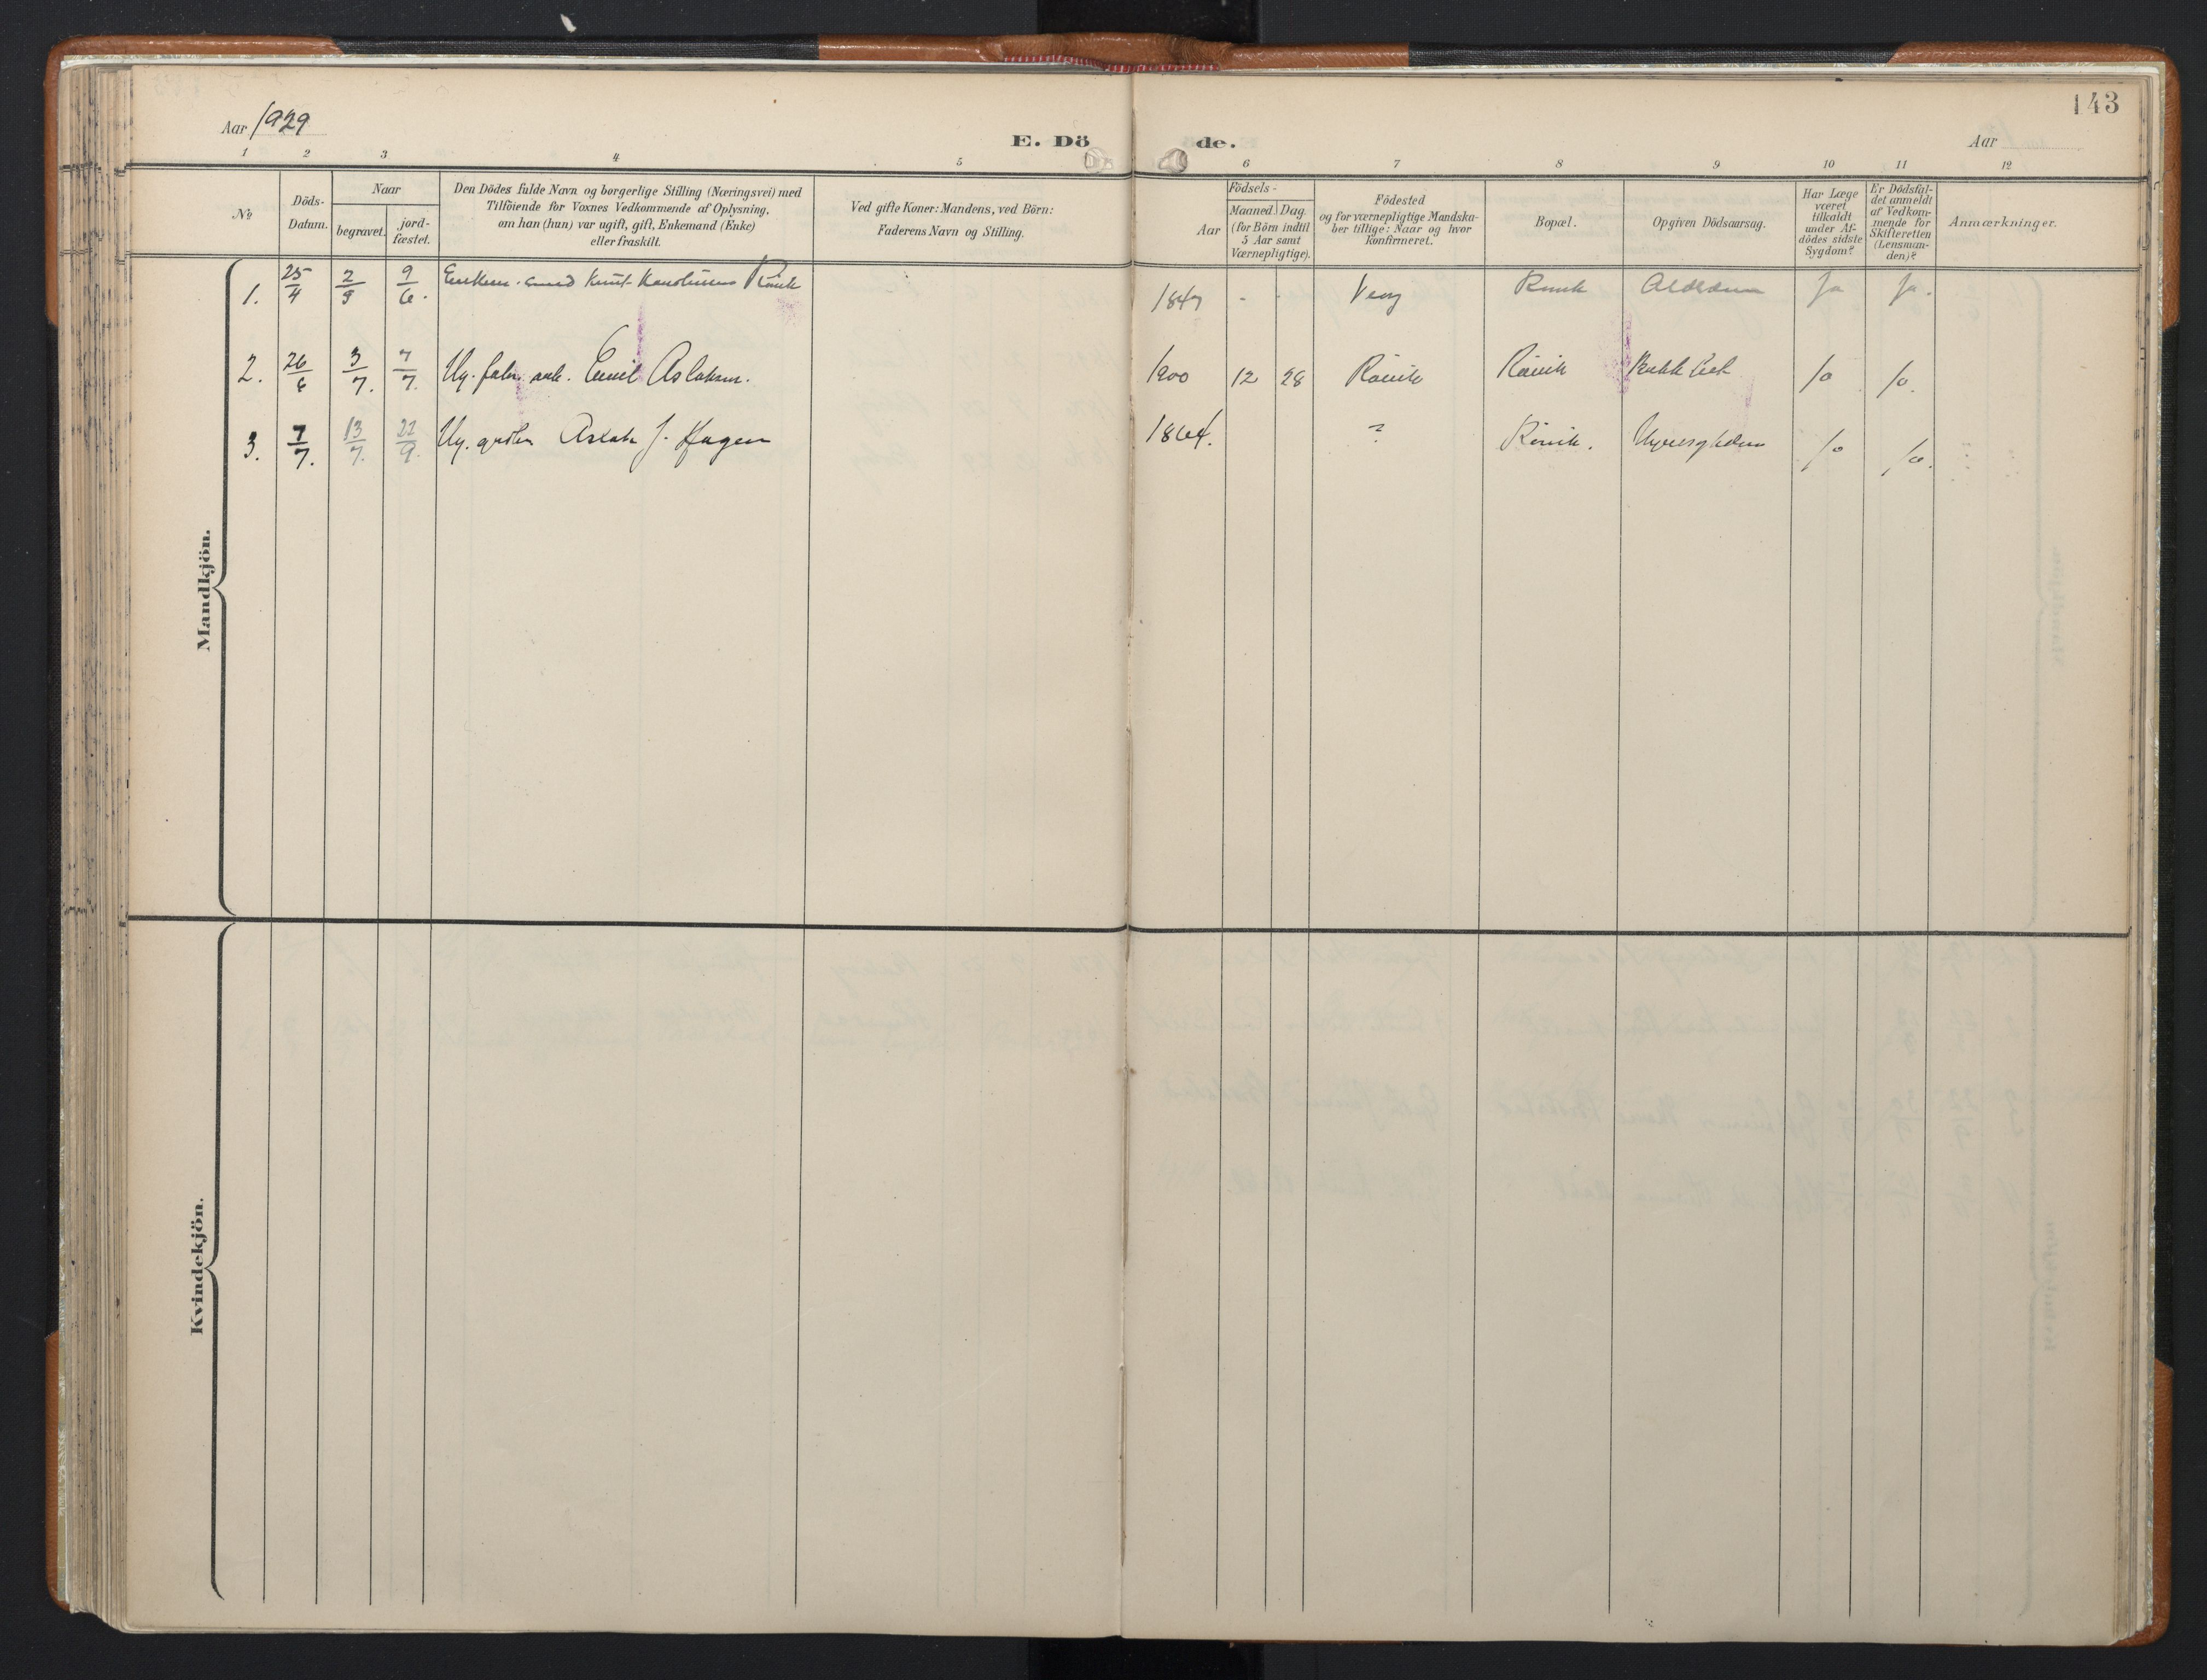 143
Aar 1929
E. Dö de.
Aar
1 2 3 4 5 6 7 8 9 10 11 12
№
Döds-
Datum.
Naar
begravet.
jord-
fæstet.
Den Dödes fulde Navn og borgerlige Stilling (Næringsvei) med
Tilföiende for Voxnes Vedkommende af Oplysning,
om han (hun) var ugift, gift, Enkemand (Enke)
eller fraskilt.
Ved gifte Koner: Mandens, ved Börn:
Faderens Navn og Stilling.
Aar
Födsels-
Maaned. Dag.
(for Börn indtil
5 Aar samt
Værnepligtige).
Födested
og for værnepligtige Mandska-
ber tillige: Naar og hvor
Konfirmeret.
Bopæl.
Opgiven Dödsaarsag.
Har Læge
været
tilkaldt
under Af-
dödes sidste
Sygdom?
Er Dödsfal-
det anmeldt
af Vedkom-
mende for
Skifteretten
(Lensman-
den)?
Anmærkninger.
Mandkjön.
1. 25/4 9/6. Knut 1847 - - Ja Ja.
2. 26/6 3/7. 7/7. Ug. Emil Aslaksen. 1900 12 28 Rönvik Rönvik Ja Ja.
3. 7/7. 13/7. 22/9. Ug. Aslak J. Hagen 1864. ? Rönvik. Ja Ja.
Kvindekjön.